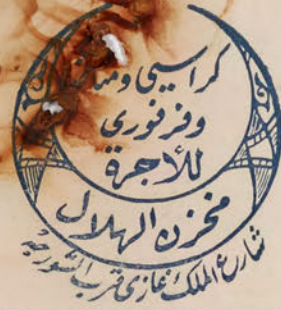 كراسي
وفرفوري
للأجرة
مخزن الهلال
شارع الملك غازي قرب الشورجه